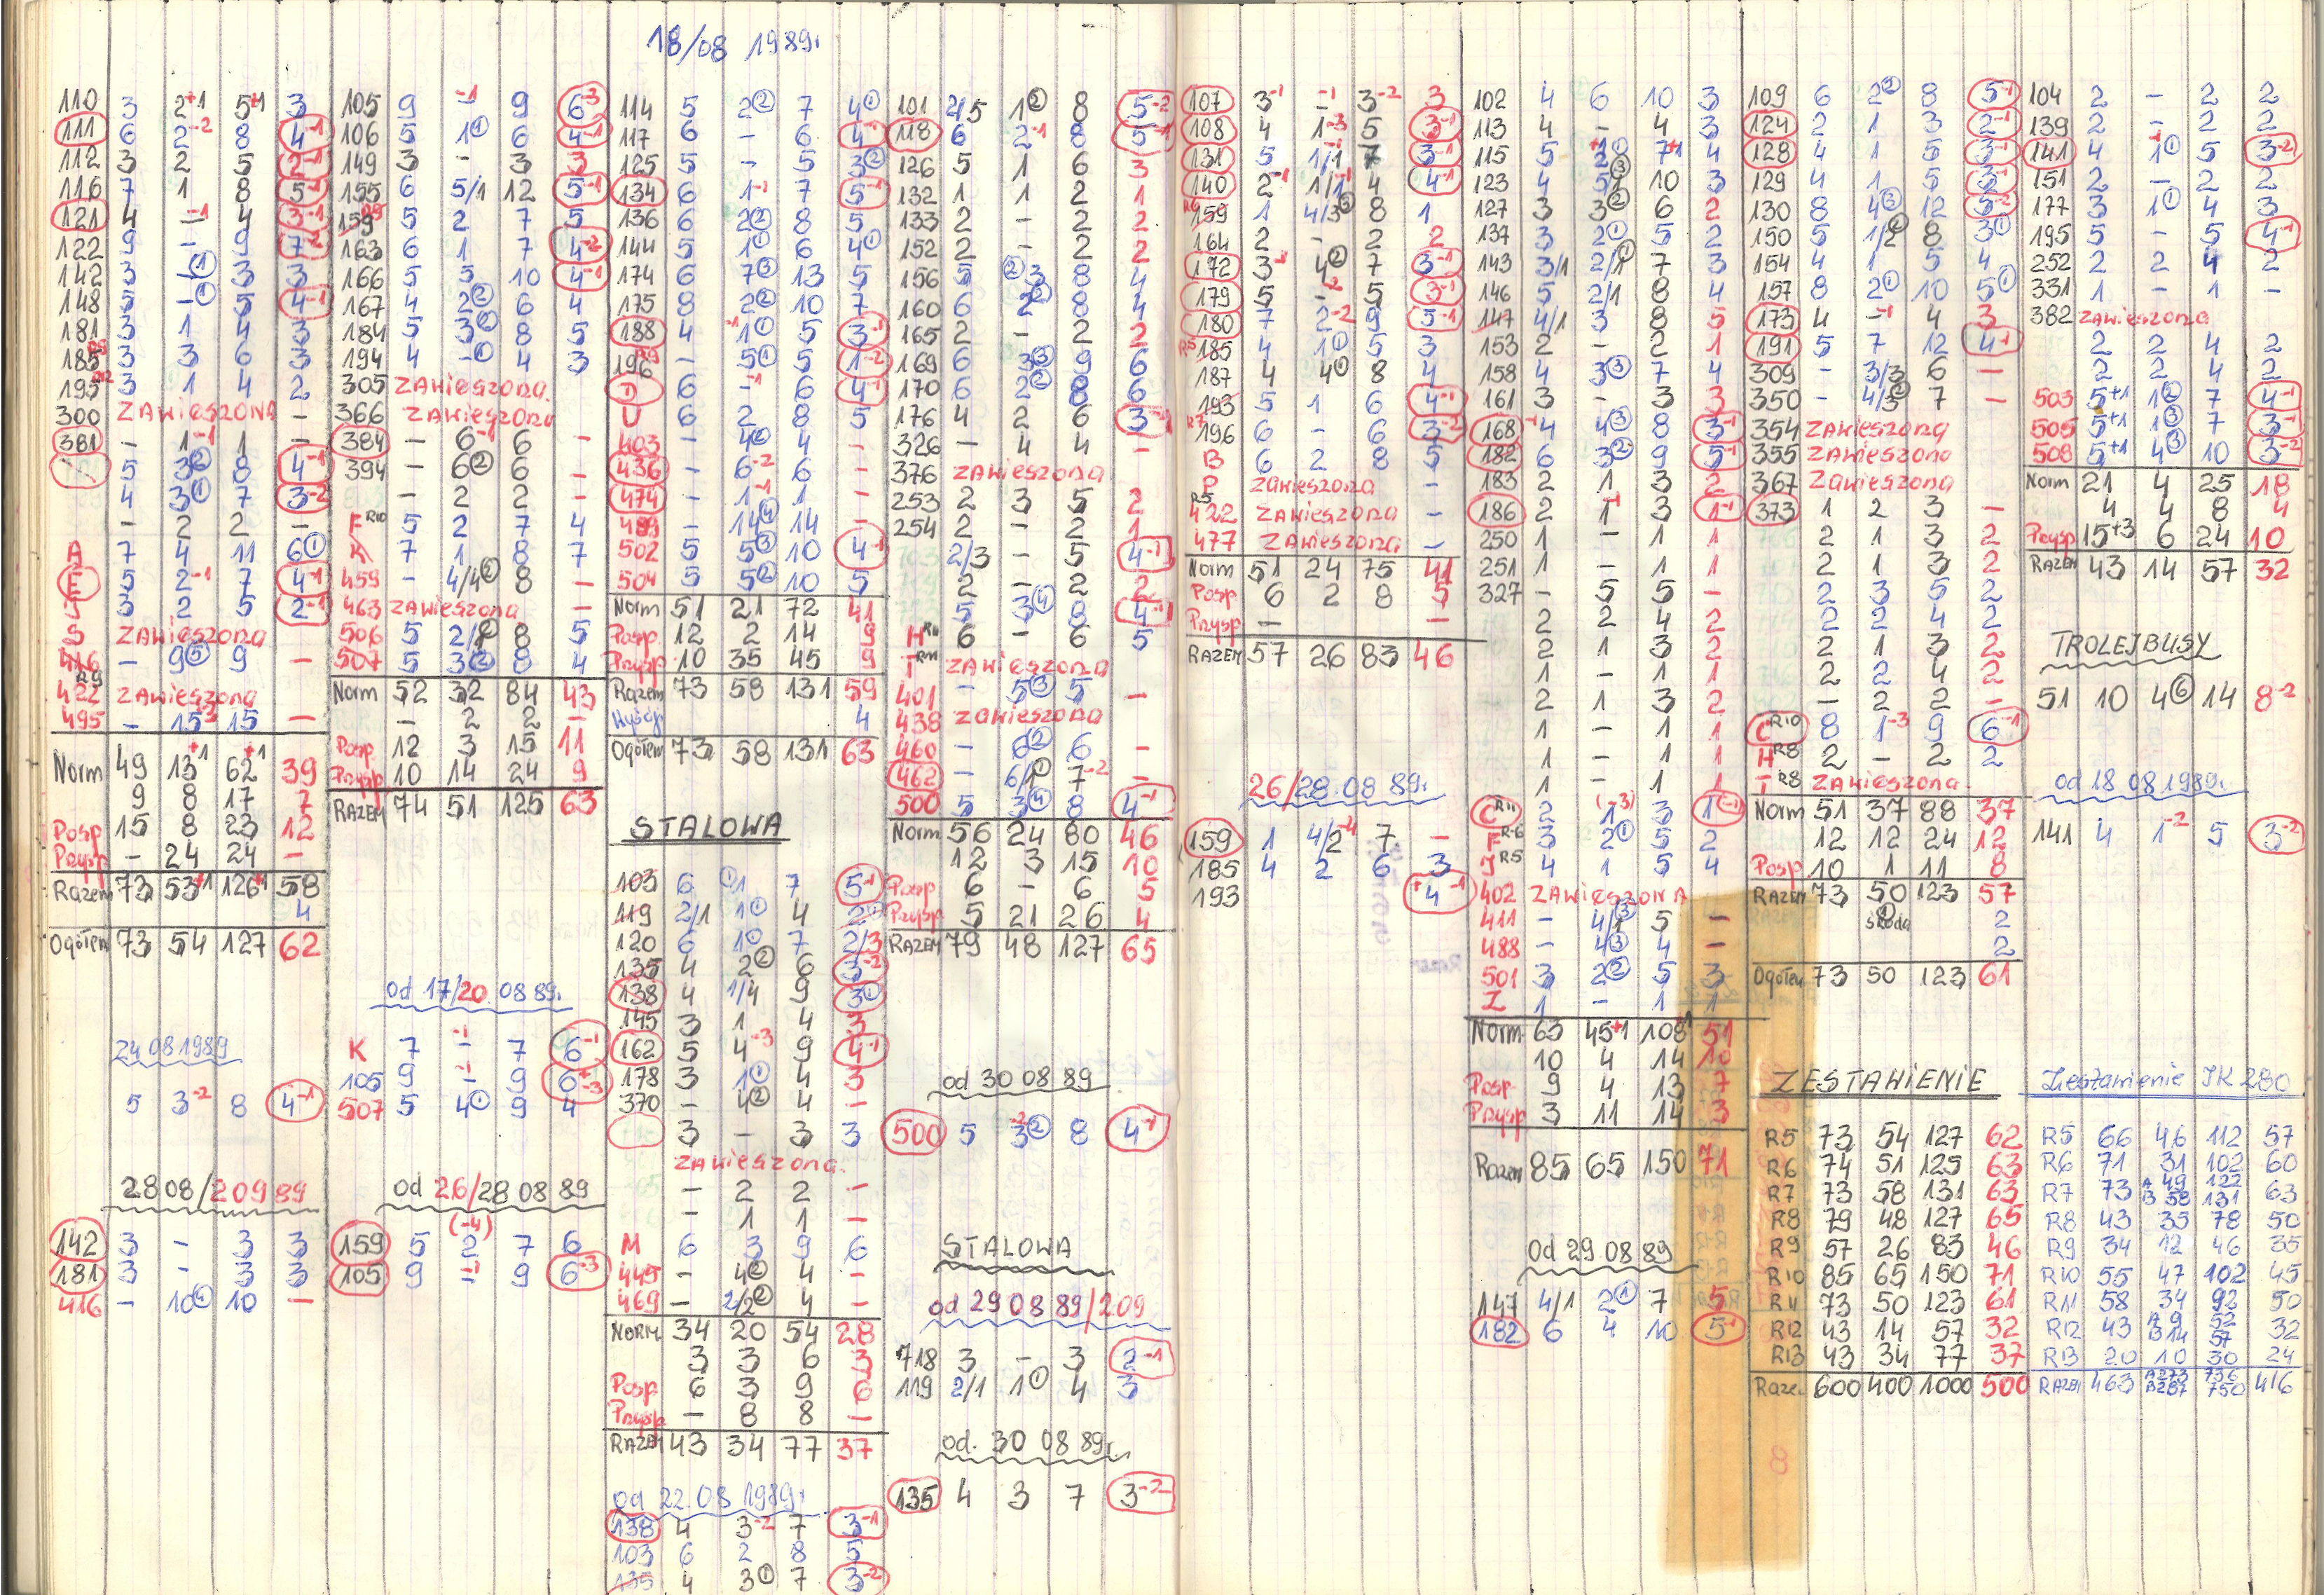 18/08 1989r.
110 3 2+1 5+1 3
111 6 2-2 8 4-1
112 3 2 5 2-1
116 7 1 8 5-1
121 4 -1 4 3-1
122 9 - 9 7-2
142 3 -① 3 3
148 5 -① 5 4-1
181 3 1 4 3
185 3 3 6 3
195 3 1 4 2
300 ZAWIESZONA -
381 - 1-1 1 -
5 3② 8 4-1
4 3① 7 3-2
- 2 2 -
A 7 4 11 6①
E 5 2-1 7 4-1
J 3 2 5 2-1
S ZAWIESZONA
416 - 9⑤ 9 -
422 ZAWIESZONA
495 - 15 15 -
Norm 49 13+1 62+1 39
9 8 17 7
Posp 15 8 23 12
Przysp - 24 24 -
Razem 73 53+1 126+1 58
4
Ogółem 73 54 127 62
24 08 1989
5 3-2 8 4-1
28 08/2 09 89
142 3 - 3 3
181 3 - 3 3
416 - 10④ 10 -
105 9 -1 9 6-3
106 5 1① 6 4-1
149 3 - 3 3
155 6 5/1 12 5-1
159 R9 5 2 7 5
163 6 1 7 4-2
166 5 5 10 4-1
167 4 2② 6 4
184 5 3① 8 5
194 4 -① 4 3
305 ZAWIESZONA.
366 ZAWIESZONA
384 - 6-1 6 -
394 - 6② 6 -
- 2 2 -
F R10 5 2 7 4
K 7 1 8 7
459 - 4/4② 8 -
463 ZAWIESZONA -
506 5 2/1 8 5
507 5 3② 8 4
Norm 52 32 84 43
- 2 2 -
Posp 12 3 15 11
Przysp 10 14 24 9
RAZEM 74 51 125 63
od 17/20 08 89r.
K 7 -1 7 6-1
105 9 -1 9 6-3
507 5 4① 9 4
od 26/28 08 89
159 5 2(-4) 7 6
105 9 -1 9 6-3
114 5 2② 7 4①
117 6 - 6 4-1
125 5 - 5 3②
134 6 1-1 7 5-1
136 6 2② 8 5
144 5 1① 6 4①
174 6 7③ 13 5
175 8 2② 10 7
188 4 -1 1① 5 3-1
196 R9 - 5① 5 1-2
D 6 -1 6 4-1
U 6 2 8 5
403 - 4② 4 -
436 - 6-2 6 -
474 - 1-1 1 -
489 - 14④ 14 -
502 5 5③ 10 4-1
504 5 5② 10 5
Norm 51 21 72 41
Posp. 12 2 14 9
Przysp 10 35 45 9
Razem 73 58 131 59
4
Ogółem 73 58 131 63
STALOWA
103 6 ①1 7 5-1
119 2/1 1① 4
120 6 1① 7 2/3
135 4 2② 6 3-2
138 4 1/4 9 3①
145 3 1 4 3
162 5 4-3 9 4-1
178 3 1① 4 3
370 - 4② 4 -
3 - 3 3
ZAWIESZONA.
- 2 2 -
- 1 1 -
M 6 3 9 6
445 - 4② 4 -
469 - 2/2② 4 -
NORM. 34 20 54 28
3 3 6 3
Posp. 6 3 9 6
Przysp - 8 8 -
RAZEM 43 34 77 37
od 22.08 1989r.
138 4 3-2 7 3-1
103 6 2 8 5
135 4 3① 7 3-2
101 2/5 1② 8 5-2
118 6 2-1 8 5-1
126 5 1 6 3
132 1 1 2 1
133 2 - 2 2
152 2 - 2 2
156 5 ②3 8 4
160 6 2② 8 4
165 2 - 2 2
169 6 3③ 9 6
170 6 2② 8 6
176 4 2 6 3-1
326 - 4 4 -
376 ZAWIESZONA -
253 2 3 5 2
254 2 - 2 1
2/3 - 5 4-1
2 - 2 2
5 3④ 8 4-1
H R11 6 - 6 5
T R11 ZAWIESZONA
401 - 5③ 5 -
438 ZAWIESZONA
460 - 6② 6 -
462 - 6/1① 7-2 -
500 5 3④ 8 4-1
Norm 56 24 80 46
12 3 15 10
Posp 6 - 6 5
Przysp 5 21 26 4
RAZEM 79 48 127 65
od 30 08 89
500 5 3② 8 4-1
STALOWA
od 29 08 89/2 09
718 3 - 3 2-1
119 2/1 1① 4 3
od. 30 08 89r.
135 4 3 7 3-2
107 3-1 -1 3-2 3
108 4 1-3 5 3-1
131 5 1/1 7 3-1
140 2-1 1/1 4 4-1
R6 159 1 4/3③ 8 1
164 2 - 2 2
172 3 4② 7 3-1
179 5 - 5 3-1
180 7 2-2 9 5-1
R5 185 4 1① 5 3
187 4 4① 8 4
193 5 1 6 4-1
R7 196 6 - 6 3-2
B 6 2 8 5
P ZAWIESZONA -
R5 422 ZAWIESZONA -
477 ZAWIESZONA -
Norm 51 24 75 41
Posp 6 2 8 5
Przysp - -
RAZEM 57 26 83 46
26/28.08 89r.
159 1 4/2-4 7 -
185 4 2 6 3
193 +4-1
102 4 6 10 3
113 4 - 4 3
115 5 2① 7+1 4
123 4 5③ 10 3
127 3 3② 6 2
137 3 2① 5 2
143 3/1 2/1① 7 3
146 5 2/1 8 4
147 4/1 3 8 5
153 2 - 2 1
158 4 3③ 7 4
161 3 - 3 3
168 4 4③ 8 3-1
182 6 3② 9 5-1
183 2 1 3 2
186 2 1-1 3 1-1
250 1 - 1 1
251 1 - 1 1
327 - 5 5 -
2 2 4 2
2 1 3 2
1 - 1 1
2 1 3 2
1 - 1 1
1 - 1 1
1 - 1 1
C R11 2 1(-3) 3 1-1
F R6 3 2① 5 2
J R5 4 1 5 4
402 ZAWIESZONA
411 - 4/1③ 5 -
488 - 4③ 4 -
501 3 2② 5 3
Z 1 - 1 1
Norm 63 45+1 108+1 51
10 4 14 10
Posp 9 4 13 7
Przysp 3 11 14 3
Razem 85 65 150 71
od 29 08 89
147 4/1 2① 7 5
182 6 4 10 5
109 6 2② 8 5-1
124 2 1 3 2-1
128 4 1 5 3-1
129 4 1 5 3-1
130 8 4③ 12 5-2
150 5 1/2② 8 3①
154 4 1 5 4
157 8 2① 10 5①
173 4 -1 4 3
191 5 7 12 4-1
309 - 3/3 6 -
350 - 4/3② 7 -
354 ZAWIESZONA
355 ZAWIESZONA
367 ZAWIESZONA
373 1 2 3 -
2 1 3 2
2 1 3 2
2 3 5 2
2 2 4 2
2 1 3 2
2 2 4 2
- 2 2 -
C R10 8 1-3 9 6-1
H R8 2 - 2 2
T R8 ZAWIESZONA
Norm 51 37 88 37
12 12 24 12
Posp. 10 1 11 8
RAZEM 73 50 123 57
skoda 2
2
Ogółem 73 50 123 61
ZESTAWIENIE
R5 73 54 127 62
R6 74 51 125 63
R7 73 58 131 63
R8 79 48 127 65
R9 57 26 83 46
R10 85 65 150 71
R11 73 50 123 61
R12 43 14 57 32
R13 43 34 77 37
Raze. 600 400 1000 500
104 2 - 2 2
139 2 - 2 2
141 4 1① 5 3-2
151 2 - 2 2
177 3 1① 4 3
195 5 - 5 4-1
252 2 2 4 2
331 1 - 1 -
382 ZAWIESZONA
2 2 4 2
2 2 4 2
503 5+1 1② 7 4-1
505 5+1 1③ 7 3-1
508 5+1 4③ 10 3-2
Norm 21 4 25 18
4 4 8 4
Przysp 15+3 6 24 10
RAZEM 43 14 57 32
TROLEJBUSY
51 10 4⑥ 14 8-2
od 18 08 1989r.
141 4 1-2 5 3-2
Zestawienie IK 280
R5 66 46 112 57
R6 71 31 102 60
R7 73 A 49 B 58 122 131 63
R8 43 35 78 50
R9 34 12 46 35
R10 55 47 102 45
R11 58 34 92 50
R12 43 A 9 B 14 52 57 32
R13 20 10 30 24
RAZEM 463 A273 B287 736 750 416